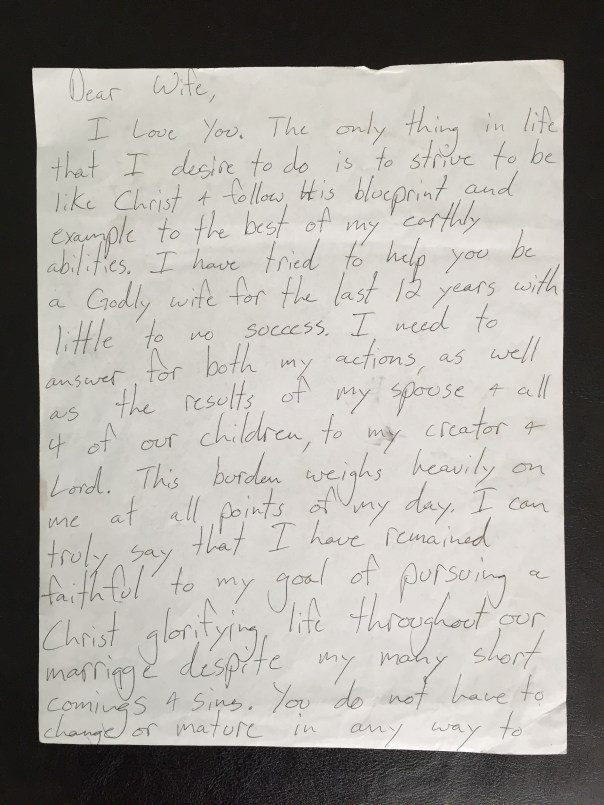 Dear Wife,
I Love You. The only thing in life
that I desire to do is to strive to be
like Christ & follow His blueprint and
example to the best of my earthly
abilities. I have tried to help you be
a Godly wife for the last 12 years with
little to no success. I need to
answer for both my actions, as well
as the results of my spouse & all
4 of our children, to my creator &
Lord. This burden weighs heavily on
me at all points of my day. I can
truly say that I have remained
faithful to my goal of pursuing a
Christ glorifying life throughout our
marriage despite my many short
comings & sins. You do not have to
change or mature in any way to